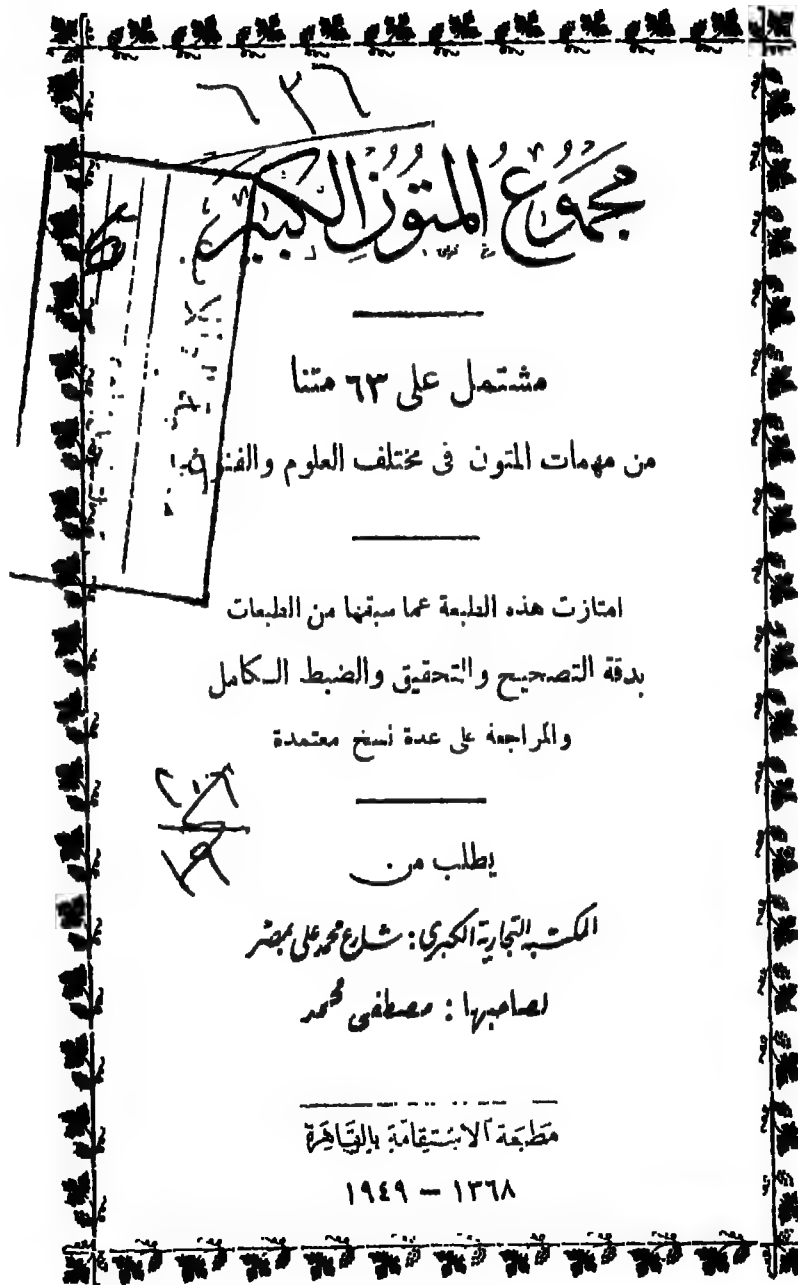 ٦٣٦
مجموع المتون الكبير
مشتمل على ٦٣ متنا
من مهمات المتون فى مختلف العلوم والفنون
امتازت هذه الطبعة عما سبقها من الطبعات
بدقة التصحيح والتحقيق والضبط الكامل
والمراجعة على عدة نسخ معتمدة
يطلب من
المكتبة التجارية الكبرى: شارع محمد على بمصر
لصاحبها : مصطفى محمد
مَطبَعة الاسْتِقامَة بالقَاهِرَة
١٣٦٨ — ١٩٤٩